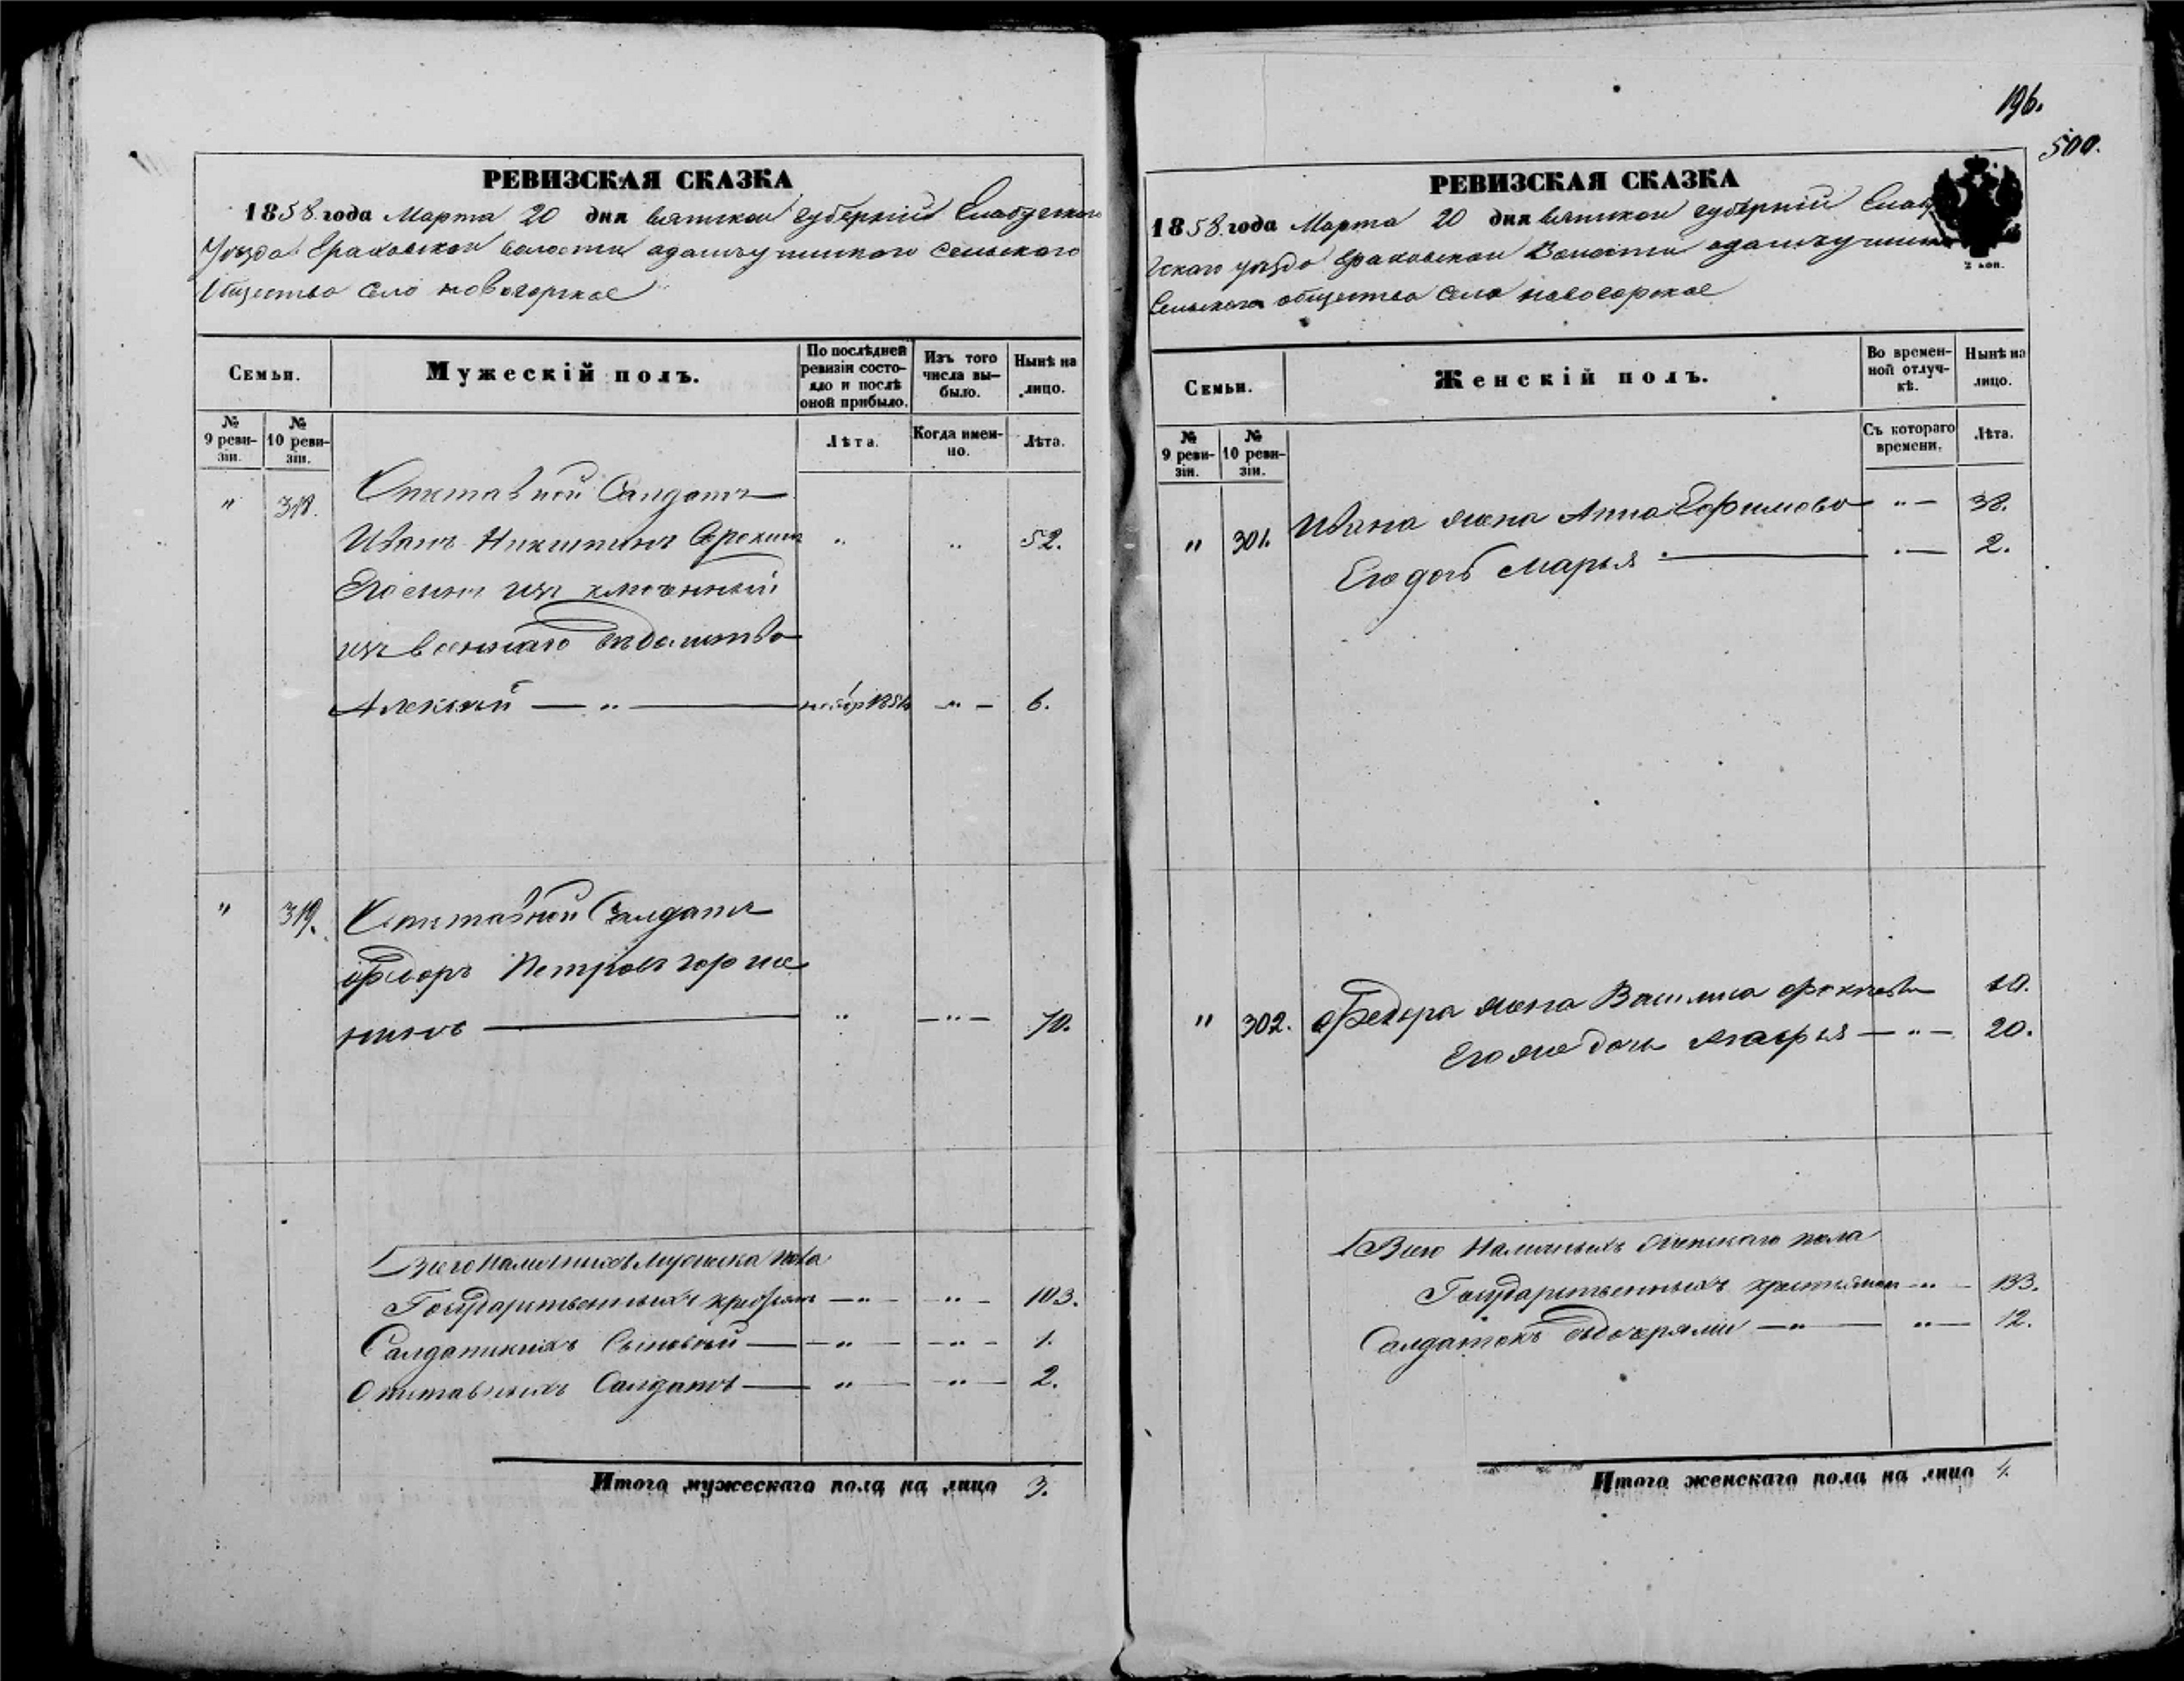 196.
500.
РЕВИЗСКАЯ СКАЗКА
1858 года Марта 20 дня вятской губерніи Елабужскаго
Уезда Граховской волости адамъучинского сельского
Общества село новогорское
Семьи.
Мужескій полъ.
По послѣдней ревизіи состояло и послѣ оной прибыло.
Изъ того числа выбыло.
Нынѣ на лицо.
№ 9 ревизіи.
№ 10 ревизіи.
Лѣта.
Когда именно.
Лѣта.
" 318. Отставной Салдатъ
Иванъ Никитинъ Сорокинъ " " 52.
Его сынъ изключенный
изъ военнаго ведомства
Алексей — " — 1854 — " — 6.
" 319. Отставной Салдатъ
Федоръ Петровъ горше
нинъ — " — " — 70.
Всего наличныхъ Мужеска пола
Государственныхъ — " — — " — 103.
Салдатскихъ Сыновей — — " — — " — 1.
Отставныхъ Салдатъ — " — — " — 2.
Итого мужескаго пола на лицо 3.
РЕВИЗСКАЯ СКАЗКА
1858 года Марта 20 дня вятской губерніи Елабу
жскаго уезда Граховской Волости адамъучинс
Сельскаго общества Село новогорское
2 коп.
Семьи.
Женскій полъ.
Во временной отлучкѣ.
Нынѣ на лицо.
№ 9 ревизіи.
№ 10 ревизіи.
Съ котораго времени.
Лѣта.
" 301. Ивана жена Анна Ефимова " — 38.
Его дочь Марья — . — 2.
" 302. Федора жена Василиса
Его же дочь — " — 20.
Всего Наличныхъ женскаго пола
Государственныхъ крестьянокъ — " — 133.
Салдатокъ с дочерями — " — " — 12.
Итого женскаго пола на лицо 4.